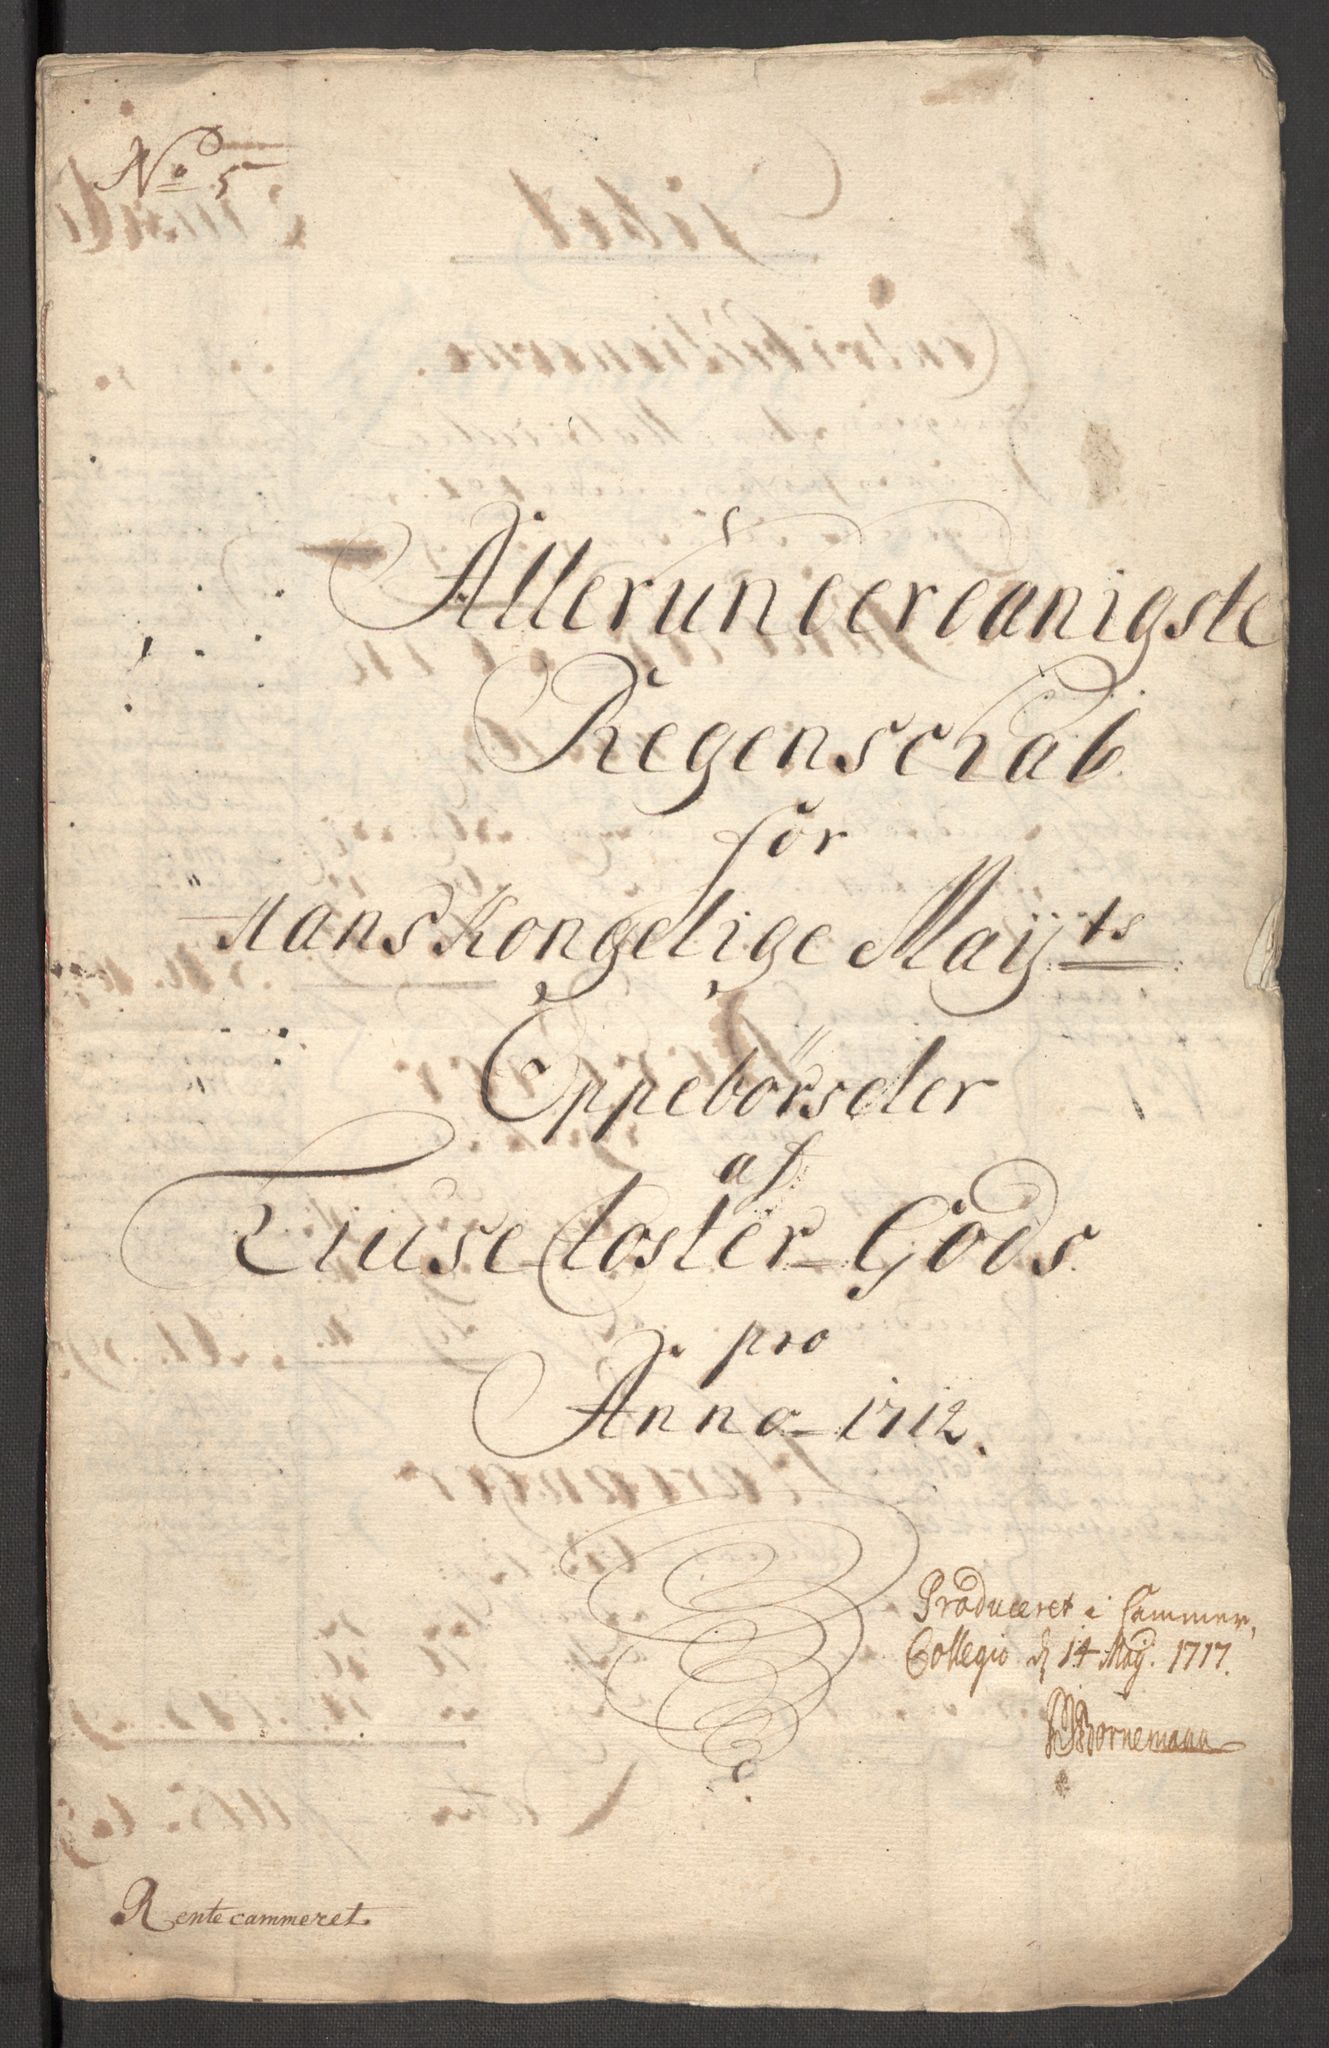 No 5
Allerunderdanigste
Regenschab
for
Hans Kongelige Maÿts
Oppebörseler
af
Liuse Closter Gods
pro
Anno 1712.
Produceret i Cammer,
Collegio d 14 Maÿ. 1717.
Bornemann
Rentecammeret